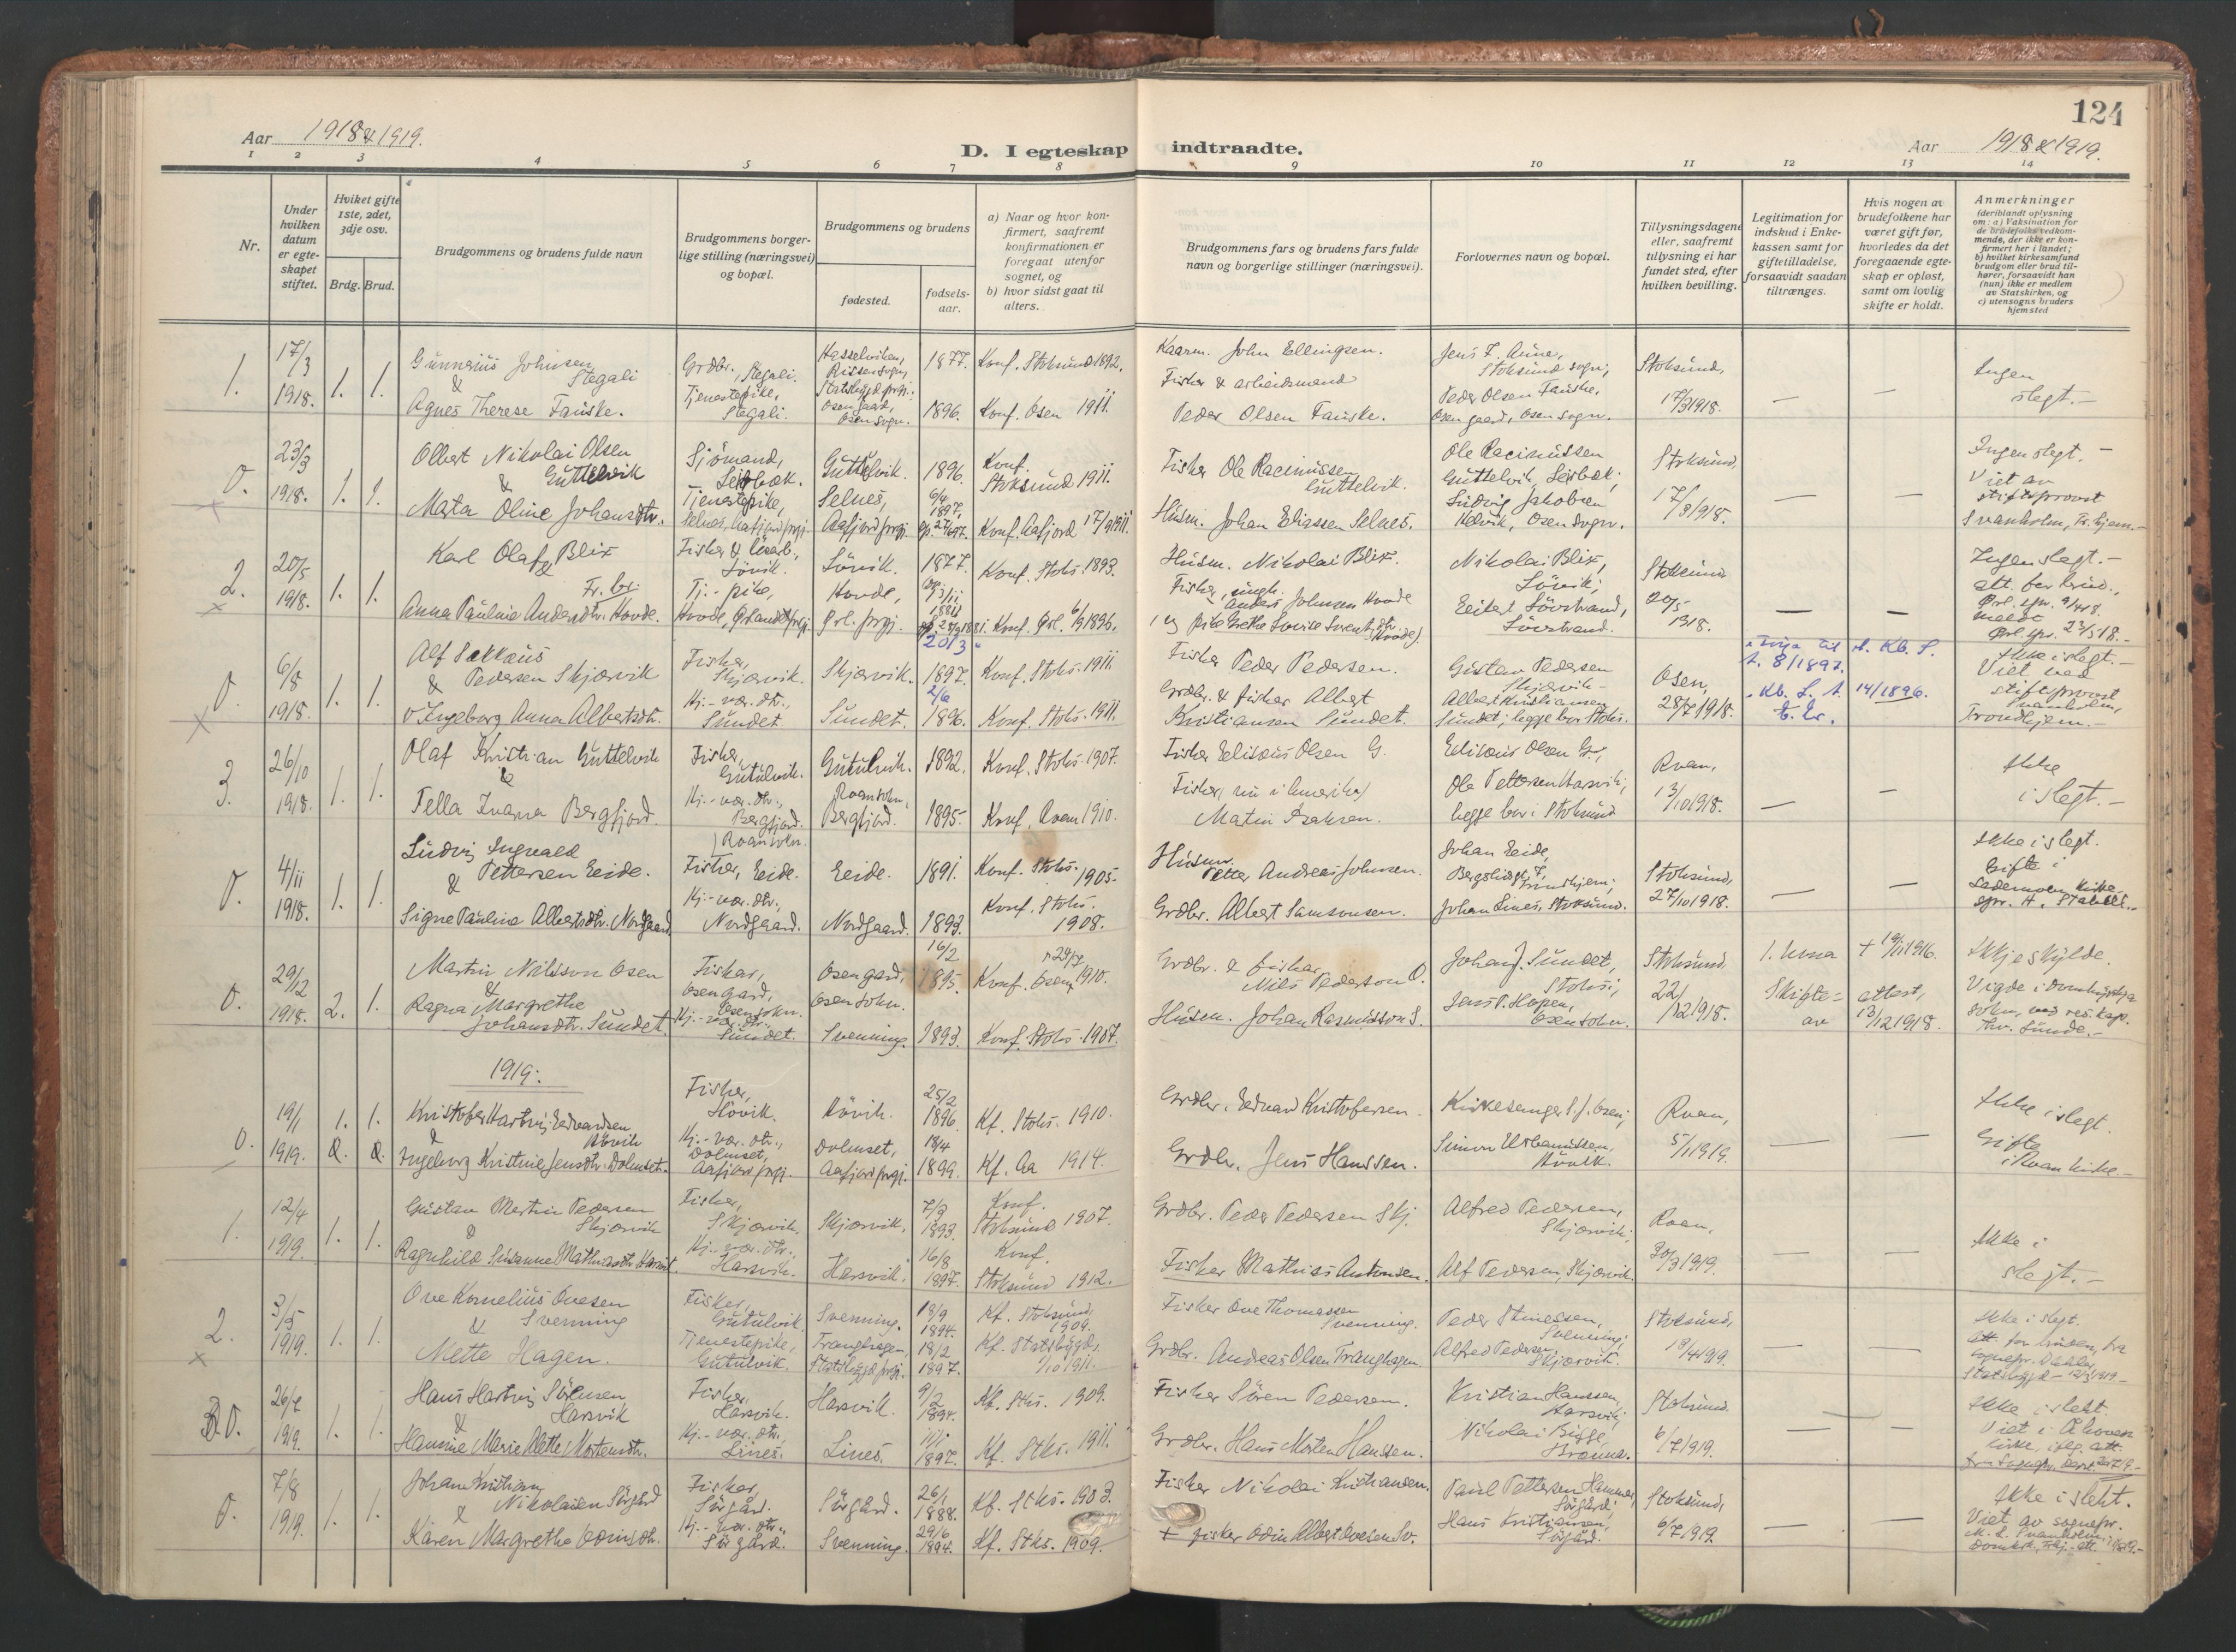 124
Aar 1918 & 1919.
D. I egteskap indtraadte.
Aar 1918 & 1919.
1 2 3 4 5 6 7 8 9 10 11 12 13 14
Nr.
Under hvilken datum er egteskapet stiftet.
Hviket gifte 1ste, 2det, 3dje osv.
Brdg. Brud.
Brudgommens og brudens fulde navn
Brudgommens borgerlige stilling (næringsvei) og bopæl.
Brudgommens og brudens
fødested.
fødselsaar.
a) Naar og hvor konfirmert, saafremt konfirmationen er foregaat utenfor sognet, og
b) hvor sidst gaat til alters.
Brudgommens fars og brudens fars fulde navn og borgerlige stillinger (næringsvei).
Forlovernes navn og bopæl.
Tillysningsdagene eller, saafremt tillysning ei har fundet sted, efter hvilken bevilling.
Legitimation for indskud i Enkekassen samt for giftetilladelse, forsaavidt saadan tiltrænges.
Hvis nogen av brudefolkene har været gift før, hvorledes da det foregaaende egteskap er opløst, samt om lovlig skifte er holdt.
Anmerkninger
(deriblandt oplysning om: a) Vaksination for de brudefolks vedkommende, der ikke er konfirmert her i landet; b) hvilket kirkesamfund brudgom eller brud tilhører, forsaavidt han (hun) ikke er medlem av Statskirken, og c) utensogns bruders hjemsted
1. 17/3 1918. 1. 1.
Gunnerius Johnsen Stegali
&
Agnes Therese Fauske.
Grdbr., Stegali.
Tjenestepike, Stegali.
Hasselviken, Rissen sogn, Statsbygd prgj.
Osen gaard, Osen sogn.
1877.
1896.
Konf. Stoksund 1892.
Konf. Osen 1911.
Kaarm. John Ellingsen.
Fisker & arbeidsmand
Peder Olsen Fauske.
Jens F. Aune, Stoksund sogn;
Peder Olsen Fauske, Osen gaard, Osen sogn.
Stoksund, 17/3 1918.
Ingen slegt.
0. 23/3 1918. 1. 1.
Olbert Nikolai Olsen Guttelvik
&
Marta Oline Johansdtr.
Sjömand,
Tjenestepike, Selnes, Aafjord prgj.
Guttelvik.
Selnes, Aafjord prgj.
1896.
6/4 1897.
Konf. Stoksund 1911.
Konf. Aafjord 17/9 1911.
Fisker Ole Racinussen Guttelvik.
Husm. Johan Eliassen Selnes.
Ole Racinussen Guttelvik,
Ludvig Jakobsen
Osen sogn.
Stoksund, 17/3 1918.
Ingen slegt.
Viet av stiftsprovst Svanholm, Tr.hjem.
2. 20/5 1918. 1. 1.
Karl Olaf Blix
&
Anna Pauline Andersdtr. Hovde.
Fisker & Lövik.
Tj.-pike, Hovde, Ørlandet prgj.
Lövik.
Hovde, Ørl. prgj.
1877.
Konf. Stoks. 1893.
Konf. Ørl. 1896.
Husm. Nikolai Blix.
Fisker, ungk. Anders Johnsen Hovde
Nikolai Blix, Lövik;
Stoksund 20/5 1918.
Ingen slegt.
0. 6/8 1918. 1. 1.
Alf Sakkæus Pedersen Skjærvik
&
Ingeborg Anna Albertsdtr.
Fisker, Skjærvik.
Hj.-vær. dtr., Sundet.
Skjærvik.
Sundet.
20/3 1897.
2/6 1896.
Konf. Stoks. 1911.
Konf. Stoks. 1911.
Fisker Peder Pedersen.
Grdbr. & fisker Albert Kristiansen Sundet.
Gustav Pedersen Skjærvik
Albert Kristiansen Sundet; begge bor Stoks.
Osen, 28/7 1918.
Kb. S.
8/1897.
14/1896.
Ikke i slegt.
Viet ved stiftsprovst Svanholm, Trondhjem.
3. 26/10 1918. 1. 1.
Olaf Kristian Guttelvik
&
Tella Ivarna Bergfjord.
Fisker, Gutulvik.
Hj.-vær. dtr., Bergfjord.
Gutulvik.
Bergfjord.
1892.
1895.
Konf. Stoks. 1907.
Konf. Roan 1910.
Fisker Elisæus Olsen G.
Fisker, nu i Amerika
Martin
Elisæus Olsen G.;
Ole Pettersen Harsvik; begge bor i Stoksund
Roan, 13/10 1918.
Ikke i slegt.
0. 4/11 1918. 1. 1.
Ludvig Ingvald Pettersen Eide.
&
Signe Pauline Albertsdtr. Nordgaard
Fisker, Eide.
Hj.-vær. dtr., Nordgaard.
Eide.
Nordgaard.
1891.
1893.
Konf. Stoks. 1905.
Konf. Stoks. 1908.
Husm. Petter Andreas Johnsen.
Grdbr. Albert Samsonsen.
Johan Eide,
Trondhjem;
Johan Lines, Stoksund.
Stoksund, 27/10 1918.
Ikke i slegt.
Gifte i Lademoen Kirke
0. 29/12 1918. 2. 1.
Martin Nilsson Osen
&
Ragna Margrethe Johansdtr. Sundet.
Fiskar, Osengard, Osen sokn.
Hj.-vær. dtr. Sundet.
Osengard, Osen sokn.
Svenning.
16/2 1895.
1893.
Konf. Osen 1910.
Konf. Stoks. 1907.
Grdbr. & fiskar Nils Pederson O.
Husm. Johan Rasmusson S.
Johan J. Sundet, Stoks.;
Jens P. Hopen, Osen sokn.
Stoksund 22/12 1918.
1. kona + 19/11 1916.
Skifte-attest, av 13/12 1918.
Ikkje skylde.
1919:
0. 19/1 1919. 1. 1.
Kristofer Hartvig Edvardsen Hövik
&
Ingeborg Kristine Jensdtr. Dolmset.
Fisker, Hövik.
Hj.-vær. dtr., Dolmset, Aafjord prgj.
Hövik.
Dolmset, Aafjord prgj.
25/2 1896.
18/4 1899.
Kf. Stoks. 1910.
Kf. Aa 1914.
Grdbr. Edvard Kristofersen.
Grdbr. Jens Hanssen.
Kirkesanger S. J. Osen;
Simon Urbanussen, Hövik.
Roan, 5/1 1919.
Ikke i slegt.
Gifte i Roan kirke.
1. 12/4 1919. 1. 1.
Gustav Martin Pedersen Skjærvik
&
Ragnhild Susanne Mathiasdtr. Harsvik.
Fisker, Skjærvik.
Hj.-vær. dtr., Harsvik.
Skjærvik.
Harsvik.
7/3 1893.
16/8 1897.
Konf. Stoksund 1907.
Konf. Stoksund 1912.
Grdbr. Peder Pedersen Skj.
Fisker Mathias Antonsen.
Alfred Pedersen, Skjærvik;
Alf Pedersen, Skjærvik.
Roan, 30/3 1919.
Ikke i slegt.
2. 3/5 1919. 1. 1.
Ove Kornelius Ovesen Svenning
&
Mette Hagen.
Fisker, Gutulvik.
Tjenestepike, Gutulvik.
Svenning.
Tranghagen, Statsbygd prgj.
18/9 1894.
18/2 1897.
Kf. Stoksund, 1909.
Kf. Statsbygd, 1/10 1911.
Fisker Ove Thomassen Svenning.
Grdbr. Andreas Olsen Tranghagen
Peder
Svenning;
Alfred Pedersen Skjærvik.
Stoksund, 19/4 1919.
Ikke i slegt.
0. 26/7 1919. 1. 1.
Hans Hartvig Sörensen Harsvik
&
Hannine Marie Alette Mortensdtr.
Fisker, Harsvik.
Hj.-vær. dtr., Lines.
Harsvik.
Lines.
9/2 1894.
1897.
Kf. Stks. 1909.
Kf. Stks. 1911.
Fisker Sören Pedersen.
Grdbr. Hans Morten Hanssen.
Kristian Hanssen, Harsvik;
Nikolai
Stoksund. 6/7 1919.
Ikke i slekt.
0. 7/8 1919. 1. 1.
Johan Kristian Nikolaisen Sörgård
&
Karen Margrethe Odinsdtr.
Fisker, Sörgård.
Hj.-vær. dtr., Sörgård.
Sörgård.
Svenning.
26/1 1888.
29/6 1894.
Kf. Stks. 1903.
Kf. Stks. 1909.
Fisker Nikolai Kristiansen.
+ fisker Odin Albert Ovesen Sv.
Paul Pettersen Hammer, Sörgård;
Hans Kristiansen, Sörgård.
Stoksund, 6/7 1919.
Ikke i slekt.
Viet av sognepr.